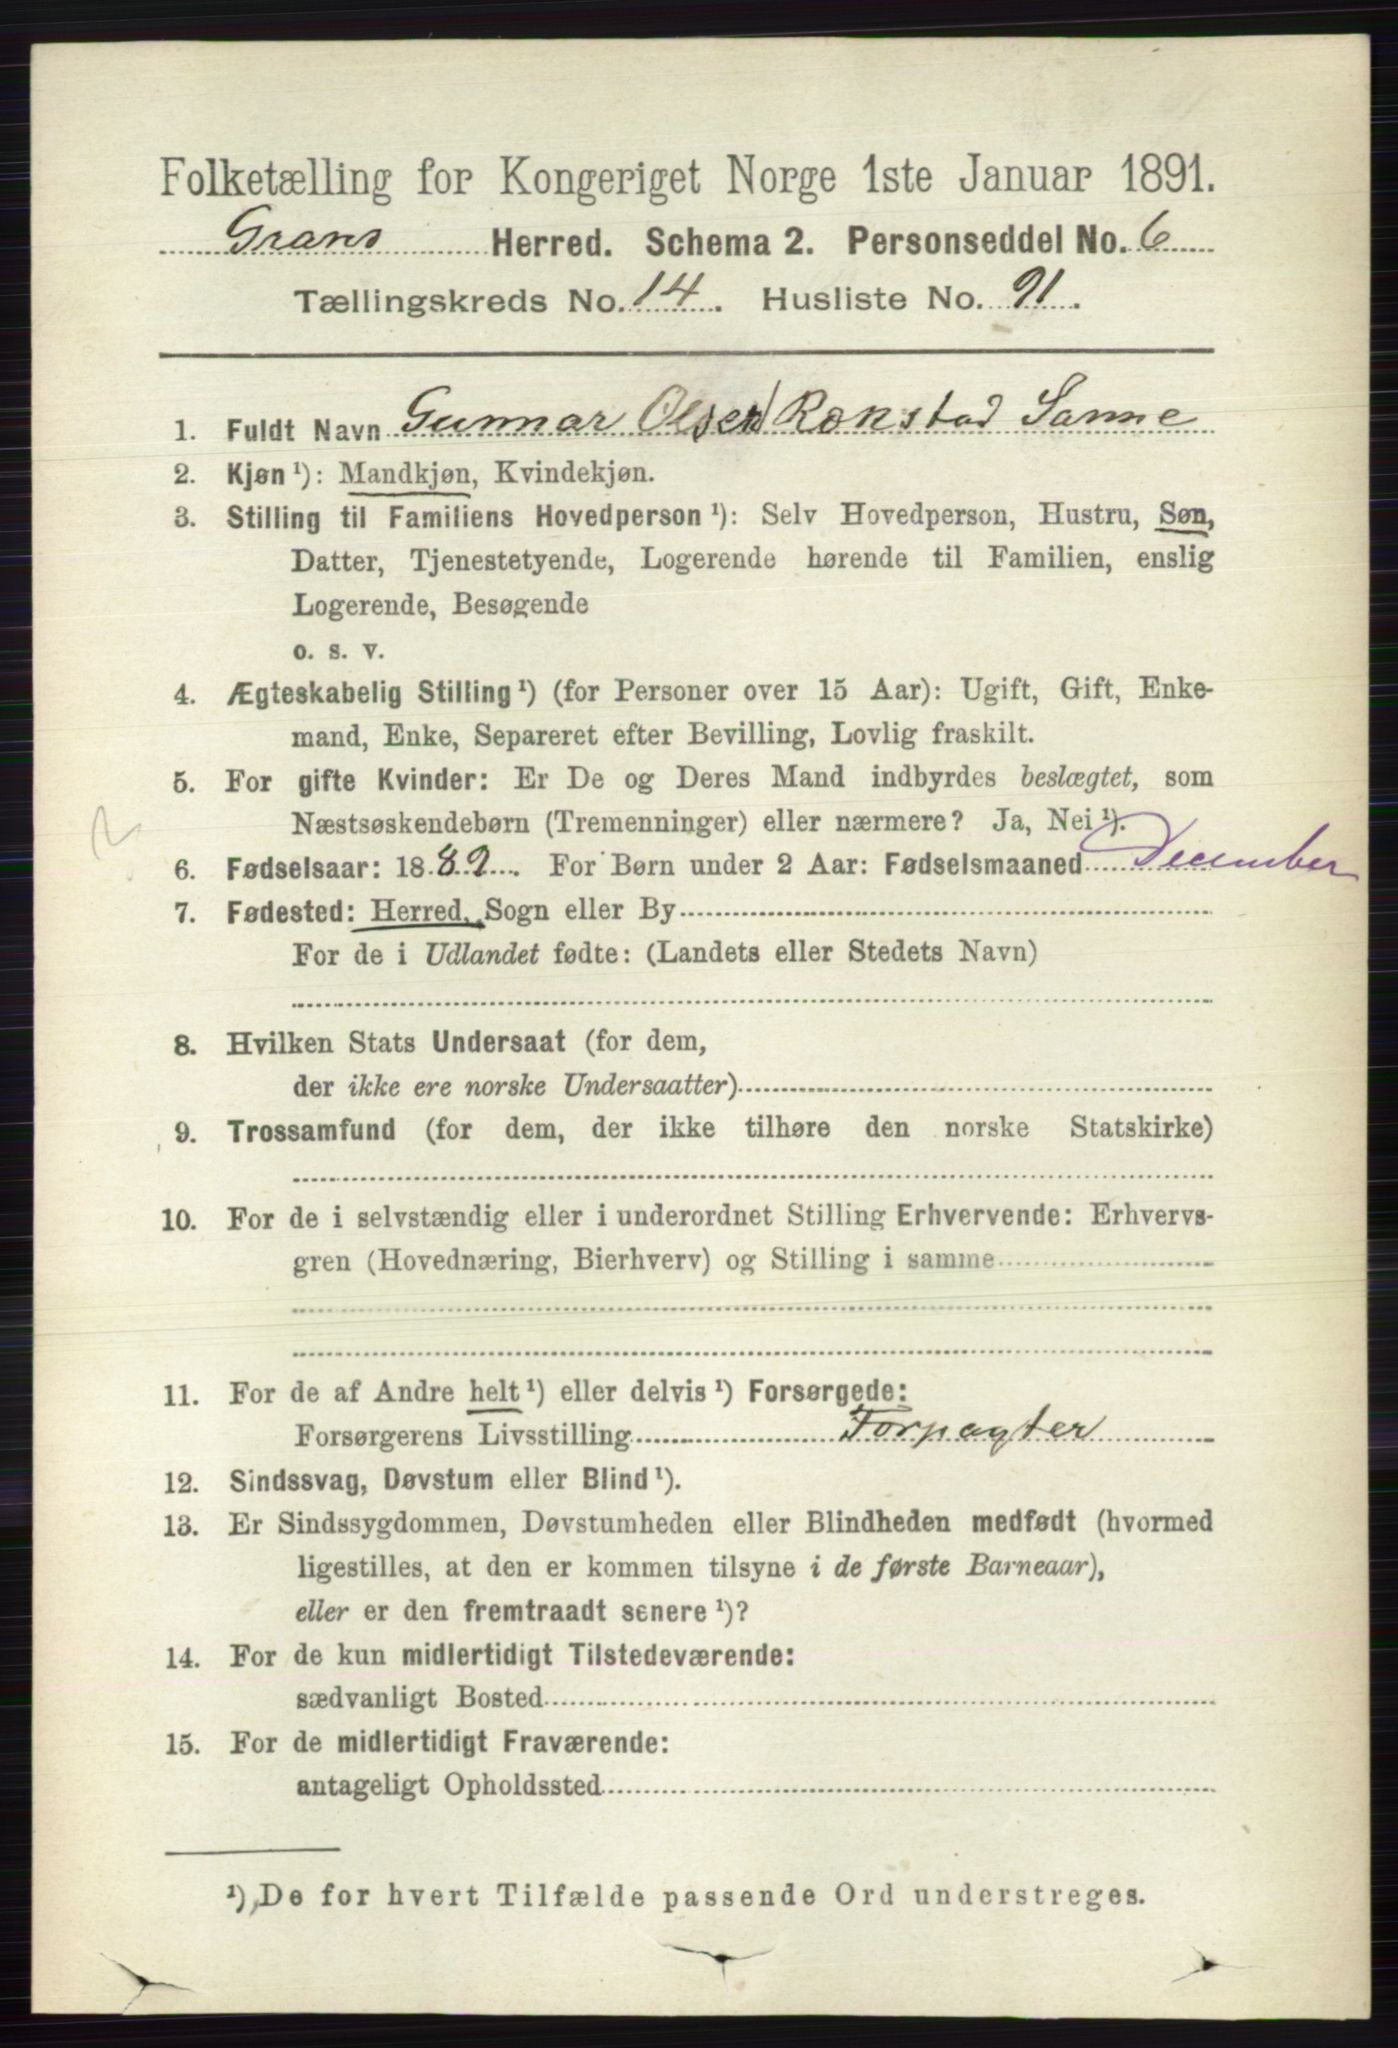 Folketælling for Kongeriget Norge 1ste Januar 1891.
Grans Herred. Schema 2. Personseddel No. 6
Tællingskreds No. 14. Husliste No. 91.
1. Fuldt Navn Gunnar Olsen Rækstad Sanne
2. Kjøn ¹): Mandkjøn, Kvindekjøn.
3. Stilling til Familiens Hovedperson ¹): Selv Hovedperson, Hustru, Søn,
Datter, Tjenestetyende, Logerende hørende til Familien, enslig
Logerende, Besøgende
o. s. v.
4. Ægteskabelig Stilling ¹) (for Personer over 15 Aar): Ugift, Gift, Enke-
mand, Enke, Separeret efter Bevilling, Lovlig fraskilt.
5. For gifte Kvinder: Er De og Deres Mand indbyrdes beslægtet, som
Næstsøskendebørn (Tremenninger) eller nærmere? Ja, Nei ¹).
6. Fødselsaar: 1889. For Børn under 2 Aar: Fødselsmaaned December
7. Fødested: Herred, Sogn eller By
For de i Udlandet fødte: (Landets eller Stedets Navn)
8. Hvilken Stats Undersaat (for dem,
der ikke ere norske Undersaatter)
9. Trossamfund (for dem, der ikke tilhøre den norske Statskirke)
10. For de i selvstændig eller i underordnet Stilling Erhvervende: Erhvervs-
gren (Hovednæring, Bierhverv) og Stilling i samme
11. For de af Andre helt ¹) eller delvis ¹) Forsørgede:
Forsørgerens Livsstilling Forpagter
12. Sindssvag, Døvstum eller Blind ¹).
13. Er Sindssygdommen, Døvstumheden eller Blindheden medfødt (hvormed
ligestilles, at den er kommen tilsyne i de første Barneaar),
eller er den fremtraadt senere ¹)?
14. For de kun midlertidigt Tilstedeværende:
sædvanligt Bosted
15. For de midlertidigt Fraværende:
antageligt Opholdssted
¹) De for hvert Tilfælde passende Ord understreges.